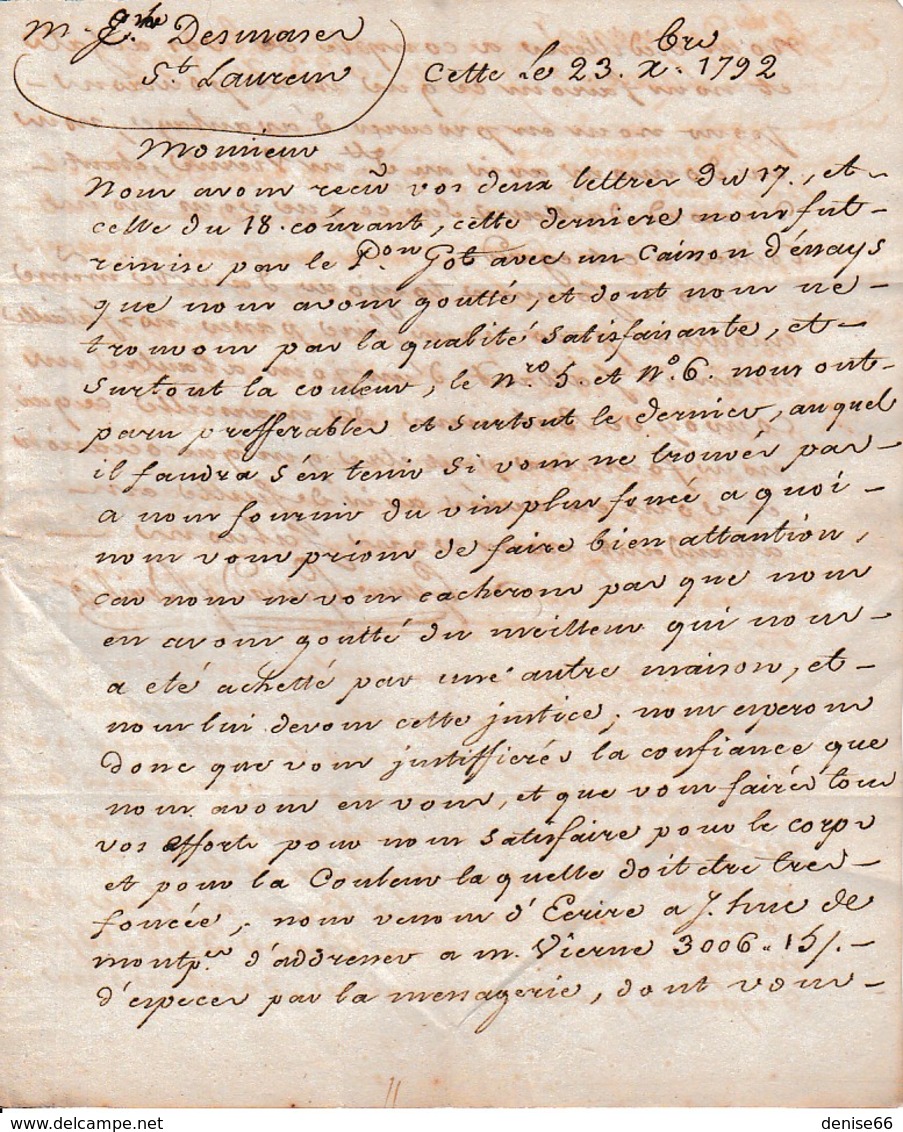 M. Desmases
St. Laurens
Cette Le 23. Xbre 1792
Monsieur
Nous avons recû vos deux lettres du 17., et
celle du 18. courant, cette derniere nous fut
remise par le Pon Got avec un Caisson d'essays
que nous avons goutté, et dont nous ne
trouvons pas la qualité satisfaisante, et
surtout la couleur, le Nro 5. et No. 6. nous ont
paru prefferables et surtout le dernier, auquel
il faudra s'en tenir si vous ne trouvés pas
a nous fournir du vin plus foncé a quoi
nous vous prions de faire bien attantion,
car nous ne vous cacherons pas que nous
en avons goutté du meilleur qui nous
a eté achetté par une autre maison, et
nous lui devons cette justice, nous esperons
donc que vous justiffierés la confiance que
nous avons en vous, et que vous fairés tous
vos efforts pour nous satisfaire pour le corps
et pour la Couleur la quelle doit etre tres
foncée, nous venons d'Ecrire a J. Luc de
montper d'addresser a m. Vierne 3006 " 15/.
d'especes par la messagerie, dont vous
denise66